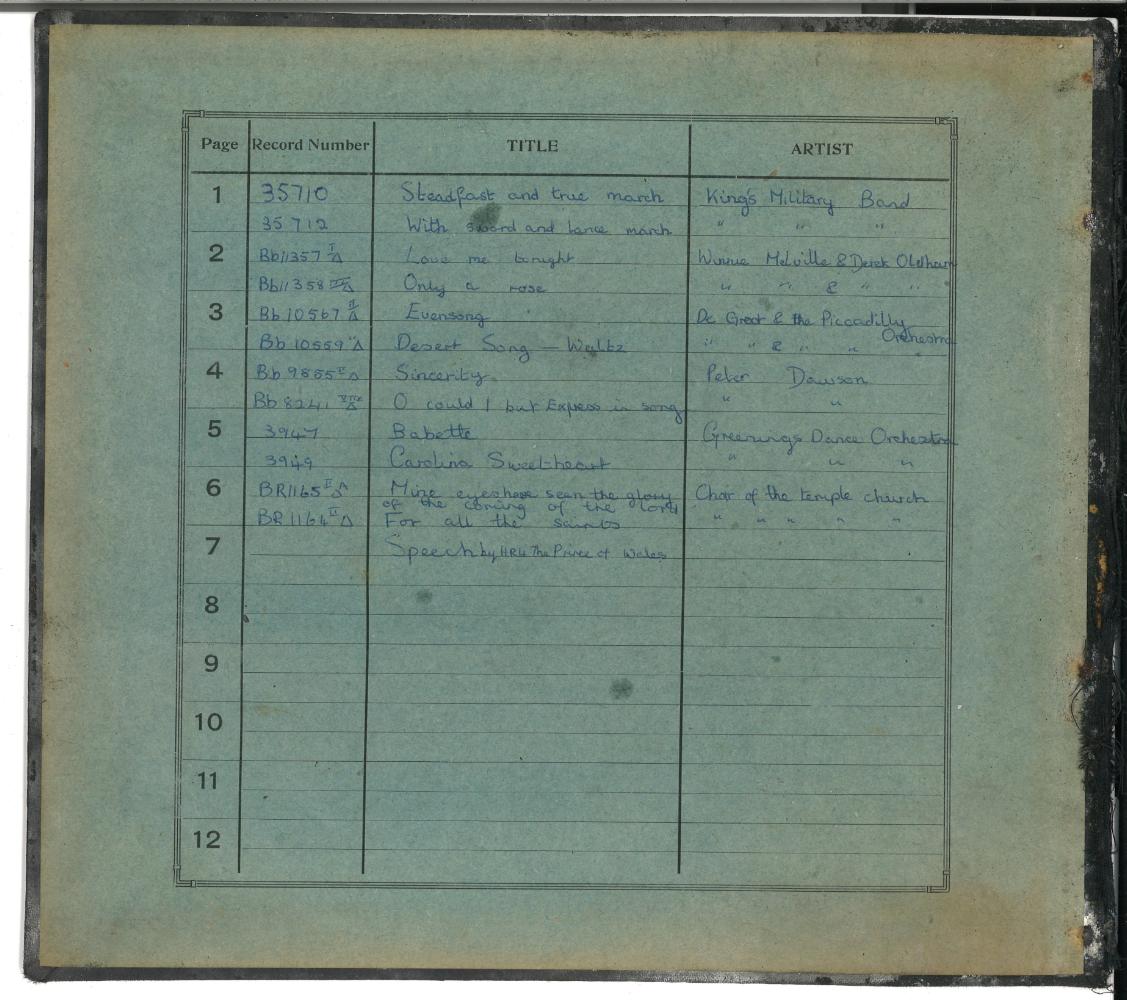 Page Record Number TITLE ARTIST
1 35710 Steadfast and true march King's Military Band
35712 With sword and lance march " " "
2 Bb11357 I Δ Love me tonight Winnie Melville & Derek Oldham
Bb11358 Δ Only a rose " " & " "
3 Bb10567 II Δ Evensong De Groot & the Piccadilly
Orchestra
Bb 10559 " Δ Desert Song — Waltz " " & " "
4 Bb 9855 II Δ Sincerity Peter Dawson
Bb 8241 Δ O could I but Express in song " "
5 3947 Babette Greenings Dance Orchestra
3949 Carolina Sweetheart " " "
6 BR1165 II Δ Mine eyes have seen the glory Choir of the temple church
of the coming of the lord
BR 1164 II Δ For all the saints " " " " "
7 Speech by HRH The Prince of Wales
8
9
10
11
12